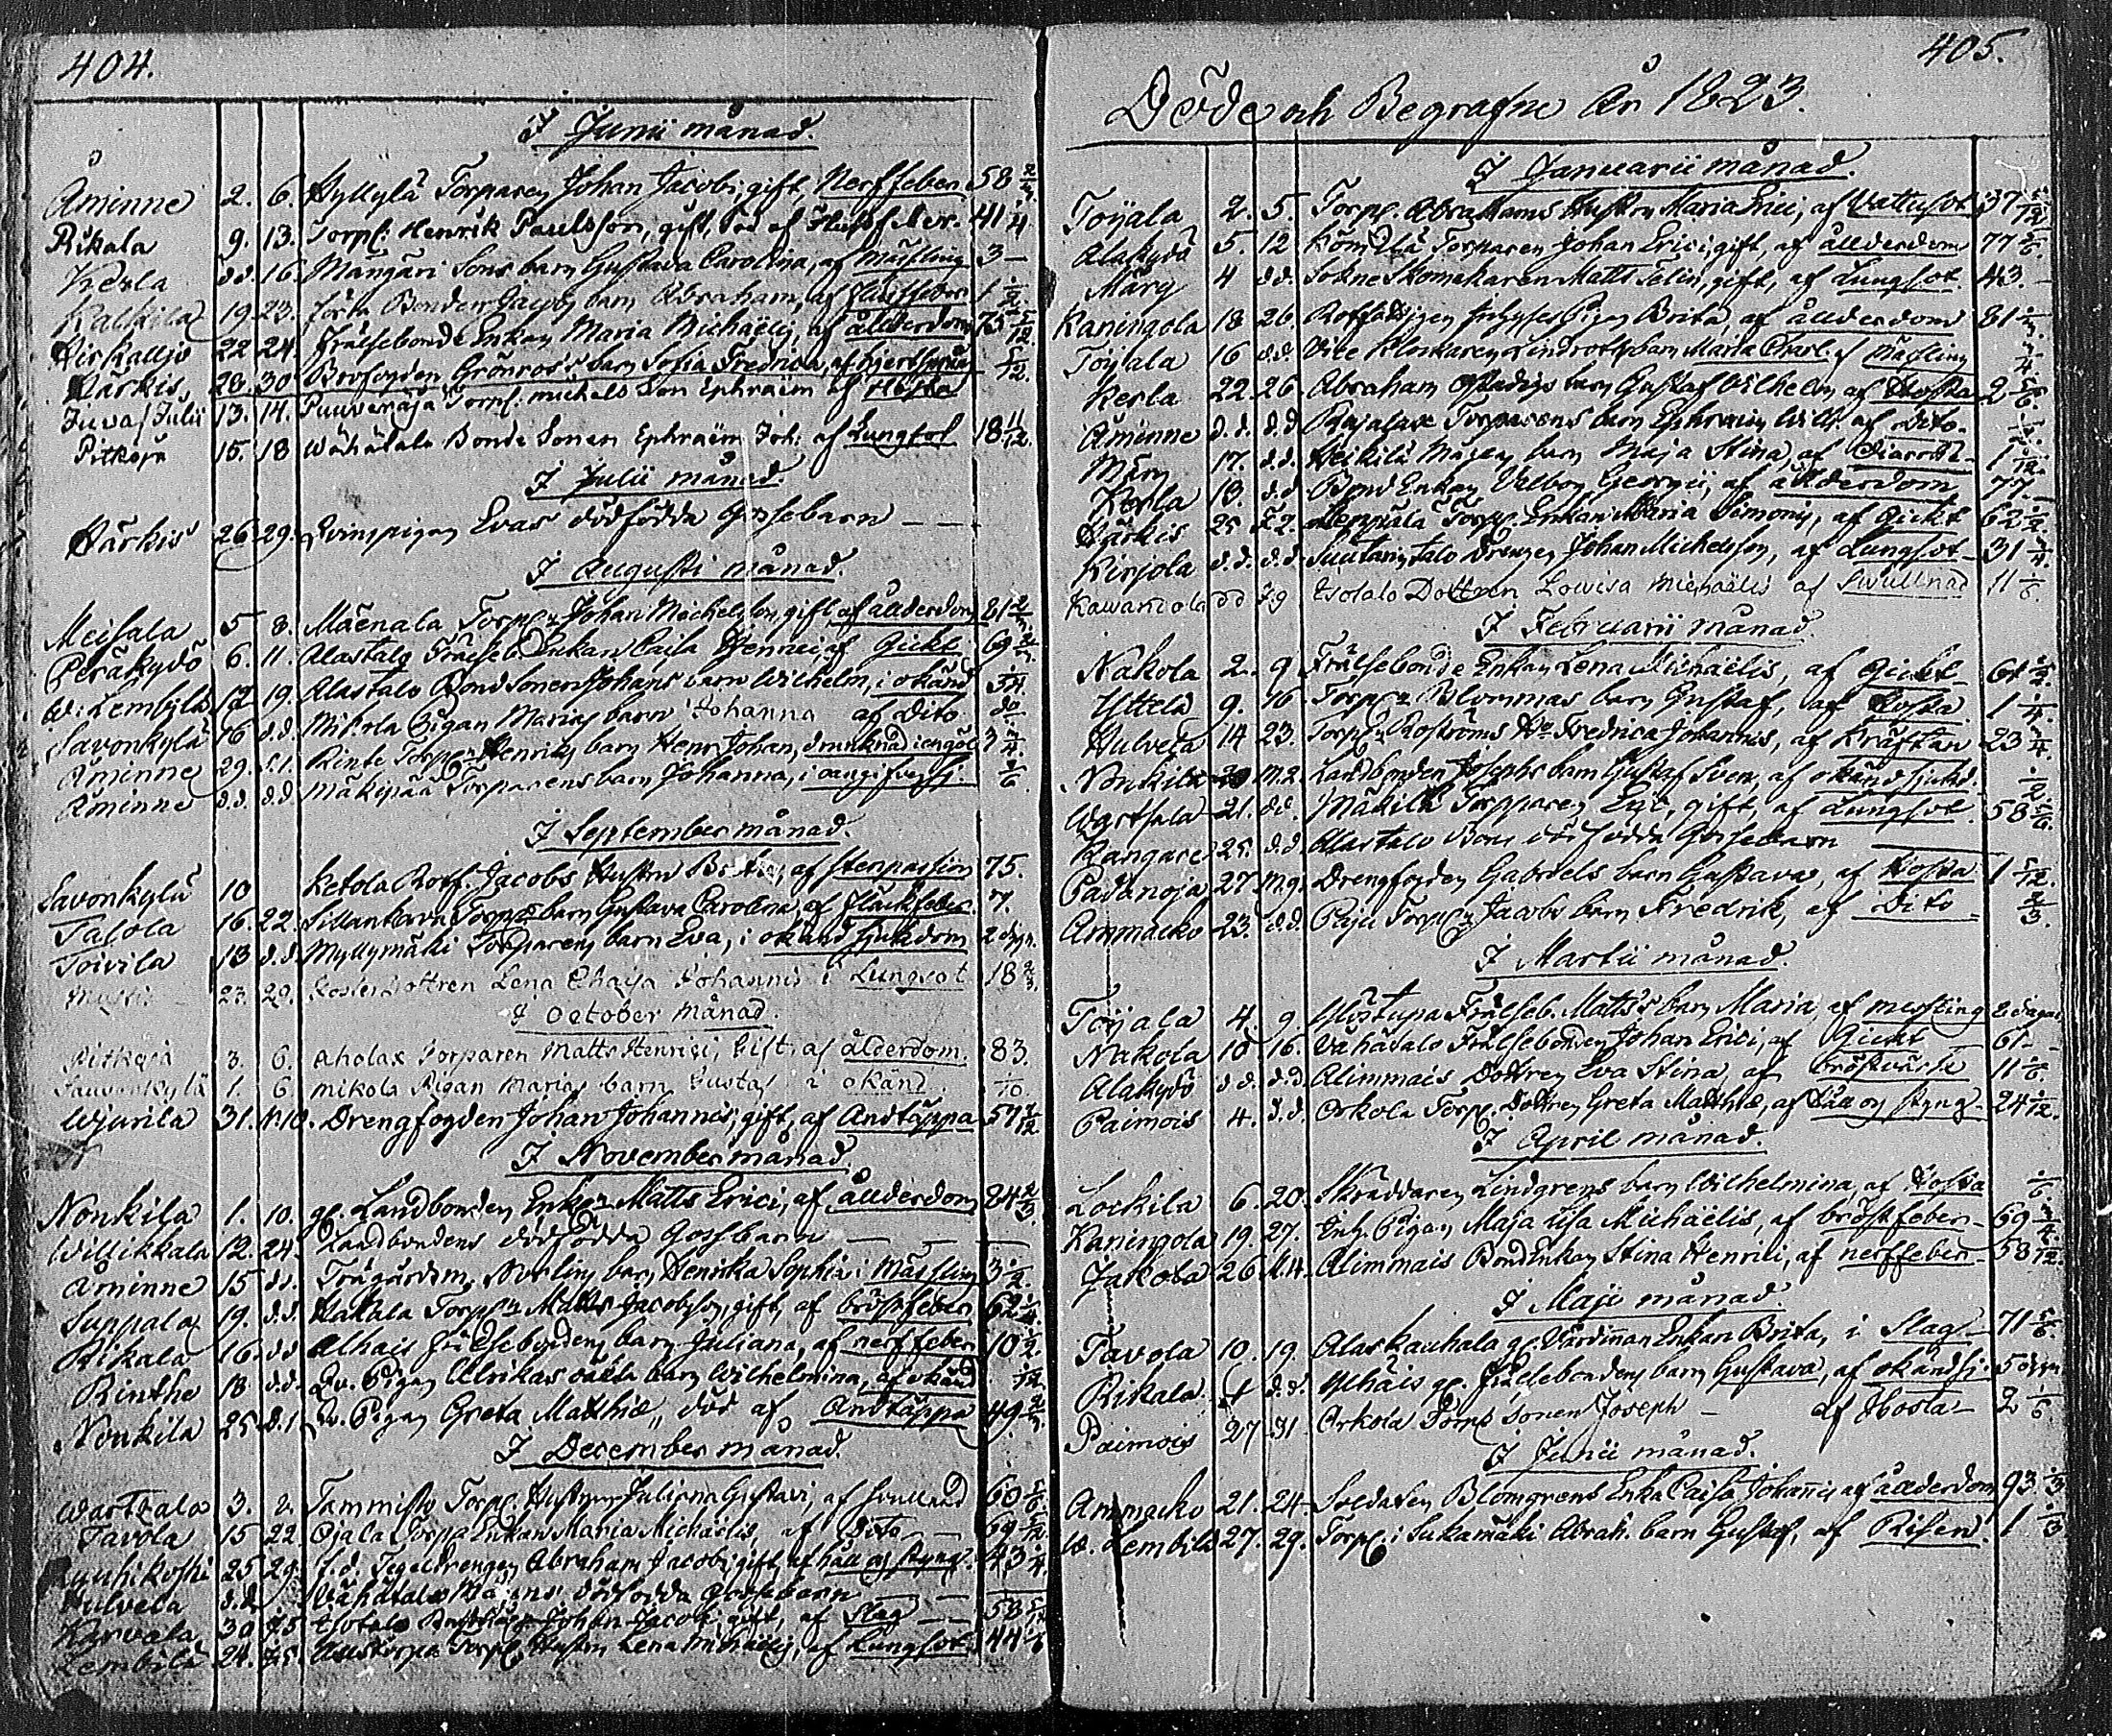 404.
I Junii månad.
Åminne 2. 6. Hyllylä Torparen Johan Jacobi, gift, Nerffeber 58 2/3.
Rikala 9. 13. Torp. Henrik Paulsson, gift, död af 41 1/4
Kerla d.d. 16. Mangäri Sons barn Gustava Carolina, af Mässling 3 —
19. 23. Bonden Jacobs barn Abraham, af 1 1/2.
22 24. Frälsebonde Enkan Maria Michaëlis, af ållderdom 75 5/12
Härkis 28. 30 Grönroos's barn Sofia Fredrica, af 5/12.
Juva / Julii 13. 14. Torp. Michels Son Ephraim af Hosta
15. 18 Wähätalo Bonde Sonen Ephraim Joh: af Lungsot 18 11/12
I Julii månad.
Härkis 26. 29. Evas dödfödda Gossebarn — —
I Augusti månad.
Meisala 5 8. Mäenala Torp. Johan Michelsson, gift, af ållderdom 81 2/3
Peräkylä 6. 11. Alastalo Frälseb. Enkan Caisa Henrici, af Gickt 69 2/3
W. Lembilä 12 19. Alastalo Bond Sonen Johans barn Wilhelm, i okänd 3/4.
Savonkylä 16 d.d. Mikola Pigan Marias barn Johanna af Dito
Åminne 29. S.1. Rinte Torp. Henriks barn Henr. Johan, drunknad 3 3/4.
Åminne d.d. d.d. Mäkipää Torparens barn Johanna, i 1/6
I September månad.
Savonkylä 10 Ketola Rotf. Jacobs Hustru af Stenpassion 75.
Talola 16. 22. Torp. barn Gustava Carolina, af Fläckfeber. 7.
Toivila 13 d.d. Myllymäki Torparens barn Eva, i okänd sjukdom 2 dygn.
23. 29. Dottren Lena Johannis i Lungsot 18 2/3.
I October månad.
3. 6. Aholax Torparen Matts Henrici, Gift, af ålderdom. 83.
Sauvonkylä 1. 6 Mikola Pigan Marias barn Gustaf i okänd. 1/10
Wjurila 31. N.10. Drengfogden Johan Johannis, gift, af Andtäppa 57 7/12
I November månad.
Nonkila 1. 10. gl. Landbonden Enkl. Matts Erici, af ållderdom 84 2/3.
Willikkala 12. 24. Landbondens dödfödda Gossbarn — — —
Åminne 15 d.d. Trägårdsm. Norling barn Henrika Sophia i Mässling 3 1/2.
Suppala 19. d.d. Hakala Torp. Matts Jacobsson, gift, af bröstfeber 62 1/4.
Rikala 16. d.d Alhais Frälsebondens barn Juliana, af nerffeber 10 1/2.
Rinthe 18 d.d. Qv. Pigan Ulrikas oäkta barn Wilhelmina, af okänd 1/12
Nonkila 25 D.1 Qv. Pigan Greta Matthiæ, död af Andtäppa 49 2/3
I December månad.
Wartsala 3. Tammisto Torp. Hustrun Juliana Gustavi, af svullnad 60 5/6.
Tavola 15 22 Ojala Torp. Enkan Maria Michaëlis, af Dito — 69 5/12
25 29. f.d. Tegeldrengen Abraham Jacobi, gift, af håll og styng. 43 1/4.
Hulvela d.d Vähätalo dödfödda Gossebarn — —
Karvala 30 J.5 Isotalo Johan Jacobi, gift, af Slag — — 53
Lembilä 24. J.5. Torp. Hustru Lena Michaëlis, af Lungsot. 44 1/6
405.
Döde och Begrafne År 1823.
I Januarii månad.
Toijala 2. 5. Torp. Abrahams Hustru Maria Erici, af Vattusot. 37 5/12
Alakylä 5. 12 Torparen Johan Erici, gift, af ållderdom 77 5/6.
Märy 4 d.d. Sokne Skomakaren Matts Felin, gift, af Lungsot. 43. —
Kaningola 18 26. Rotfattigen Pigan Brita, af ållderdom 81 1/3
Toijala 16 d.d. Vice Klockaren Lindroths barn Maria Charl. af Mässling 3/4.
Kerla 22. 26. Abraham barn Gustaf Wilhelm, af Hosta 2 5/6.
Åminne d.d. d.d Rajalax Torparens barn Ephraim Wilh. af Dito.
Märy 17. d.d. Heikilä barn Maja Stina, af 1 1/12.
Kerla 13. d.d Bond Enkan Valborg Georgii, af ållderdom 77 —
Härkis 25 Torp. Enkan Maria Simonis, af Gickt 62 1/2.
Kirjola d.d. d.d. Drengen Johan Michelsson, af Lungsot — 31 3/4.
d d Isotalo Dottren Lowisa Michaëlis af Swullnad 11 1/6.
I Februarii månad.
Nakola 2. 9. Frälsebonde Enkan Lena Michaëlis, af Gickt 64 1/2.
Yttela 9. 16. Torp. Blommas barn Gustaf, af Hosta 1 1/4.
Hulvela 14 23. Torp. Roströms Hu Fredrica Johannis, af Kräftan 23 3/4.
Nonkila 20 M.2. Landbonden Josephs barn Gustaf Sven, af okänd sjukd. 1/2.
Wartsala 21. d.d. Mäkilä Torparen Eric, gift, af Lungsot. 58 5/6.
Kangare 25. d.d. Alastalo Bons dödfödda Gossebarn ——
Pavanoja 27 M.9. Drengfogden Gabriels barn Gustava, af Hosta 1 5/12.
Ammacko 23. d.d. Paju Torp. Jacobs barn Fredrik, af Dito 2/3.
I Martii månad.
Toijala 4. 9. Ylöstupa Frälseb. Matts's barn Maria, af messling 8 dagar
Nakola 10 16. Vähätalo Frälsebonden Johan Erici, af Gickt — 61. —
Alakylä d.d. d.d. Alimmais Dottren Eva Stina, af bröstvärk 11 1/6.
Paimois 4. d.d. Orkola Torp. Dottren Greta Matthiæ, af Håll og styng — 24 1/12.
I April månad.
Lockila 6. 20. Skräddaren Lindgrens barn Wilhelmina, af Hosta 1/6.
Kaningola 19. 27. Inh. Pigan Maja Lisa Michaëlis, af bröstfeber — 69 1/4.
Jakola 26 M.4. Alimmais Bond Enkan Stina Henrici, af nerffeber — 58 1/12.
I Maji månad.
Tavola 10. 19. Alaskauhala gl. Värdinnan Enkan Brita, i Slag — 71 5/6.
Rikala. 4 d.d. Ylhäis gl. Frälsebondens barn Gustava, af okänd sj. 5 dygn
Paimois 27 31 Orkola Torp Sonen Joseph — af Hosta — 2 1/6
I Junii månad.
Ammacko 21. 24 Soldaten Blomgrens Enka Caisa Johannis af ållderdom 93 1/3
W. Lembilä 27. 29. Torp. i Sukamäki Abrah. barn Gustaf, af Risen. 1 1/3